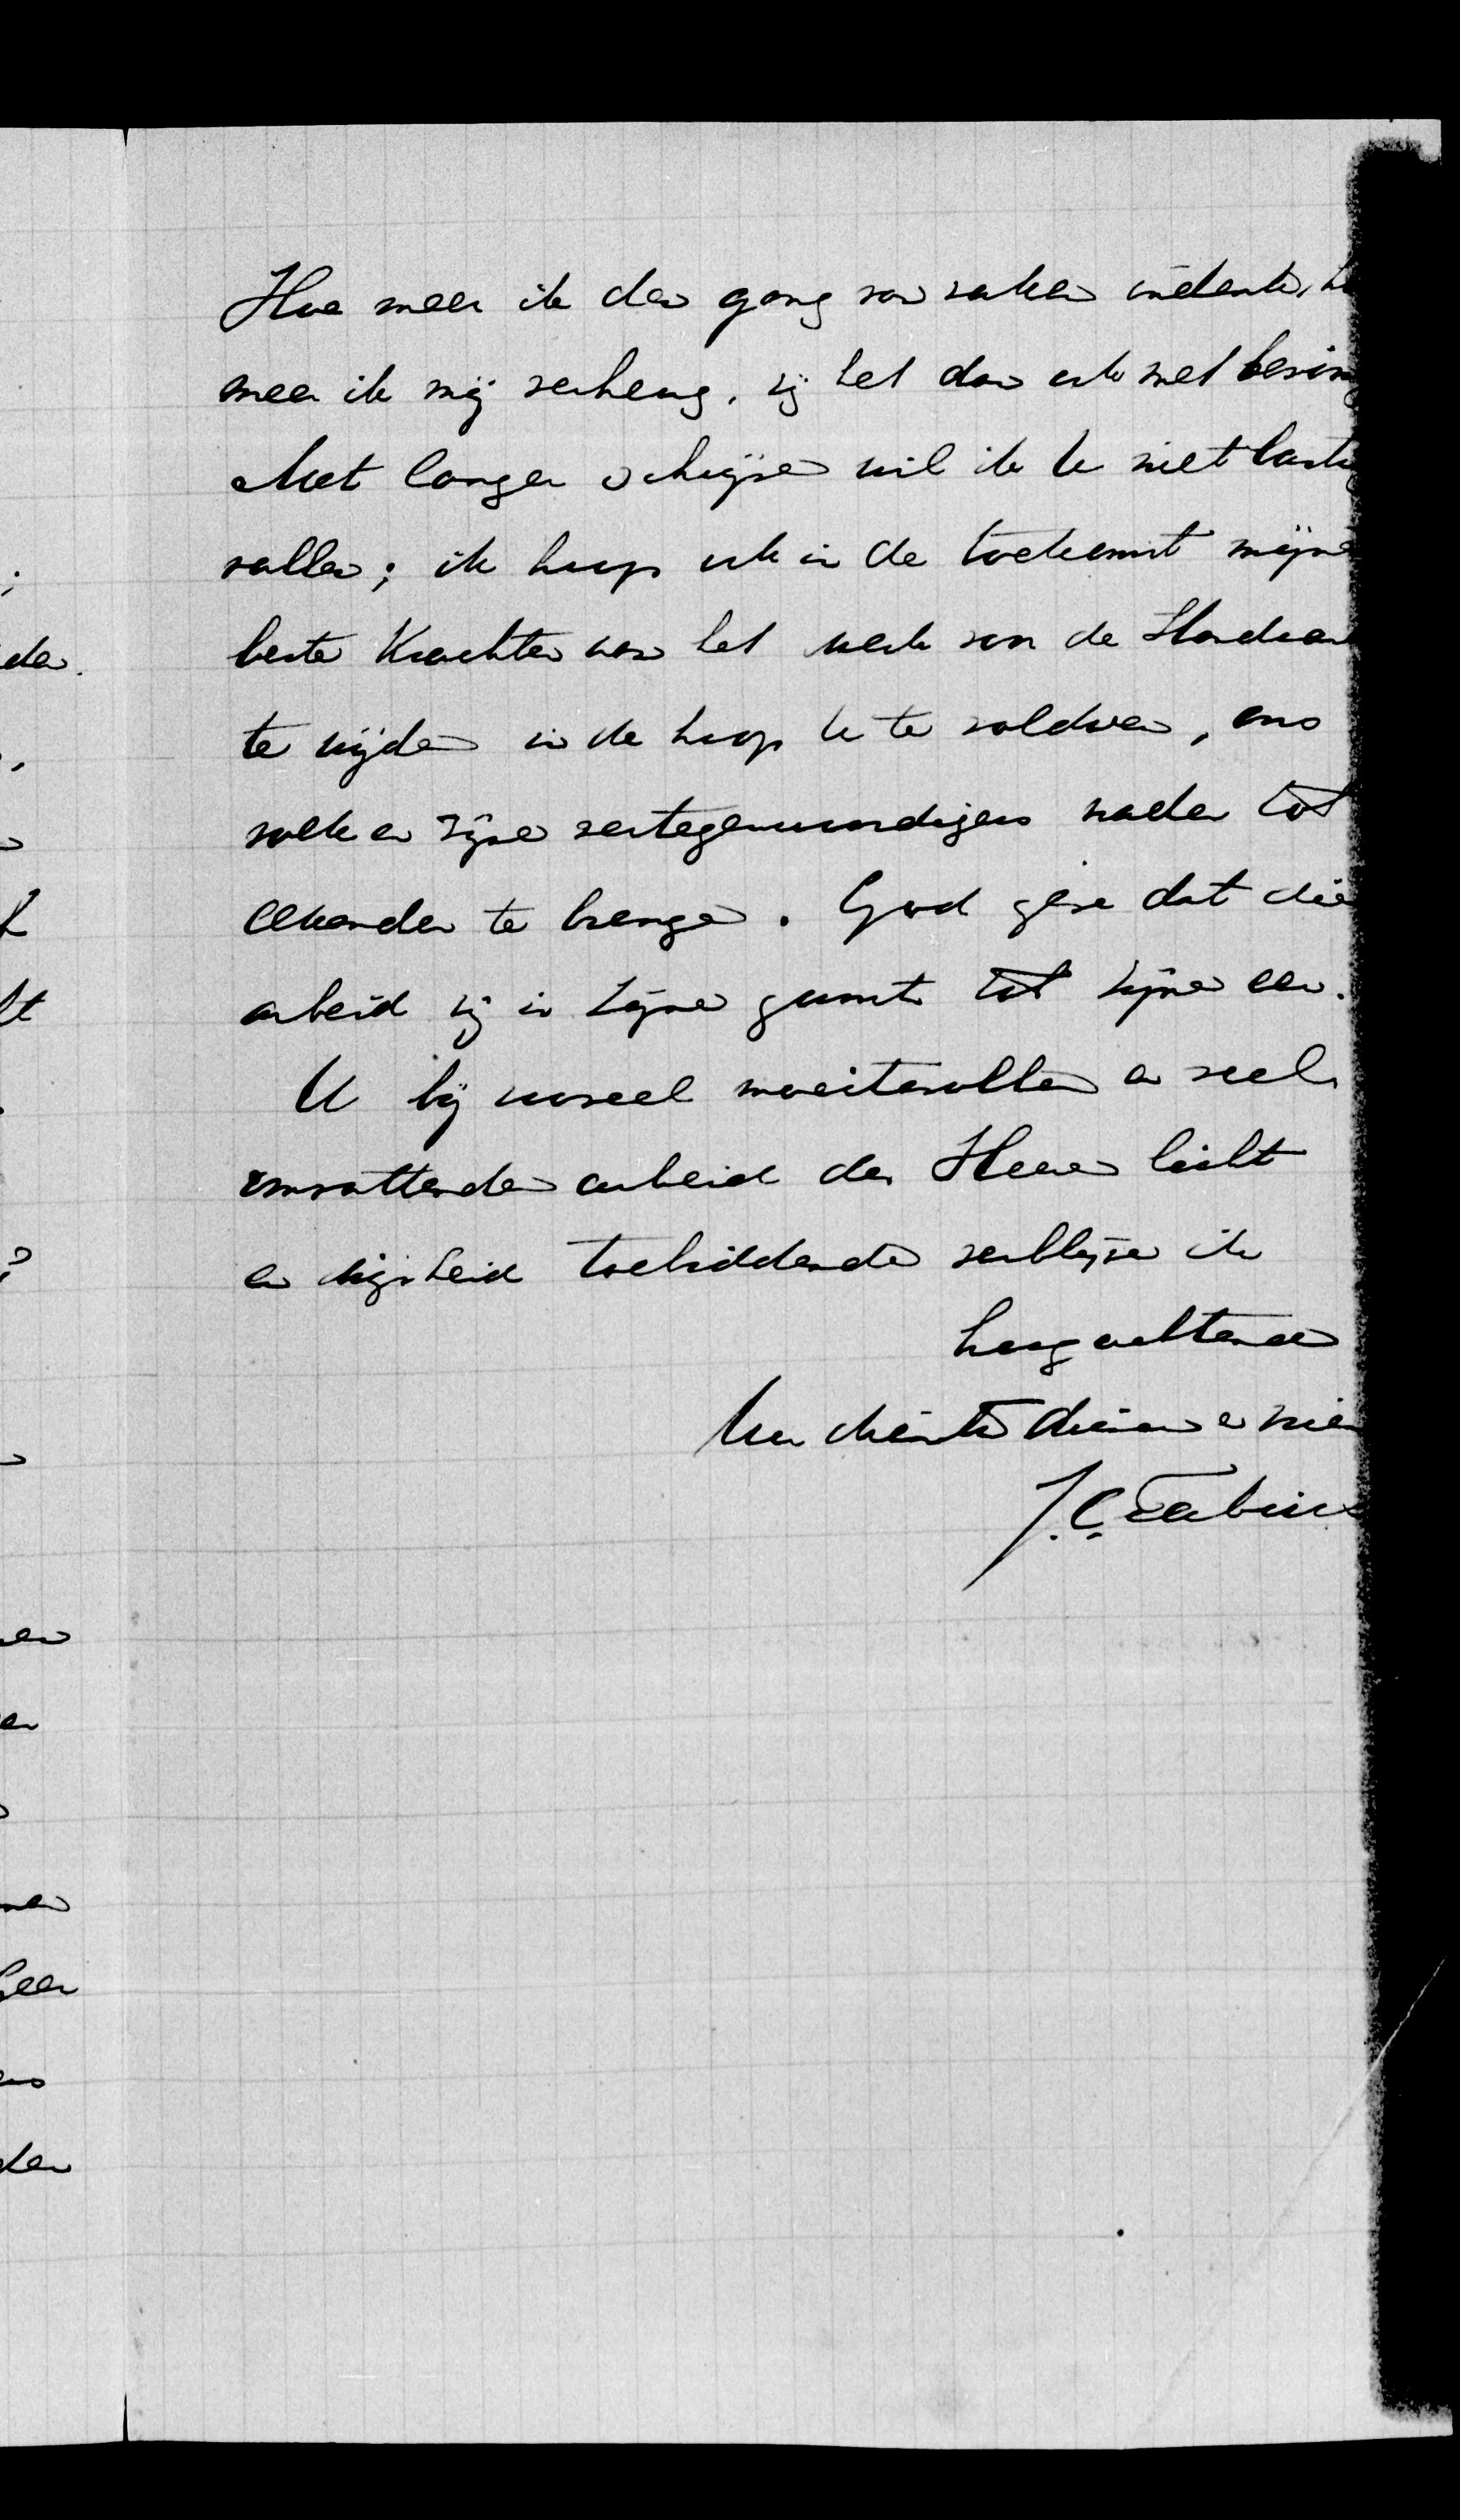 Hoe meer ik den gang van zaken indenk, ho
meer ik mij verheug, zij het dan ook met beving
Met langer schrijven wil ik U niet lastig
vallen; ik hoop ook in de toekomst mijne
beste Krachten aan het werk van de Standaard
te wijden in de hoop U te voldoen, ons
volk en zijne vertegenwoordigers nader tot
elkander te brengen. God geve dat die
arbeid zij in Zijne gunst tot Zijne eer.
U bij zooveel moeitevollen en veel
omvattenden arbeid des Heeren licht
en wijsheid toebiddende verblijve ik
hoogachtend
Uw dienstw dienaar en vrien
J. C. Fabius
der.
een